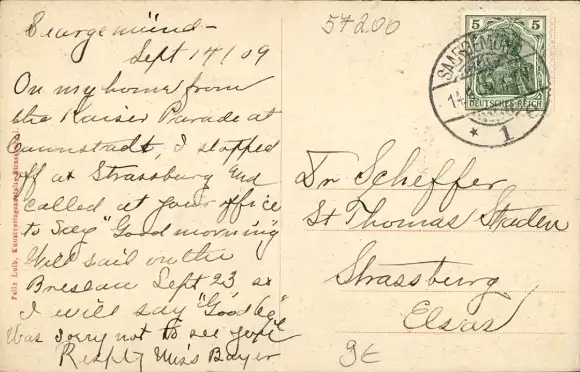 Seargemünd -
Sept 14/09
On my home from
the Kaiser Parade at
Cannstadt, I stopped
off at Strassburg and
called at your office
to say "Good morning
Will sail on the
Breslau Sept 23 so
I will say "Good bye"
Was sorry not to see you
Respty Miss Bayer
57200
5 5
SAARGEMÜND
DEUTSCHES REICH
* 1
Dr Scheffer
St Thomas Staden
Strassburg
Elsas
9E
Felix Luib, Kunstverlagsanstalt Strassburg